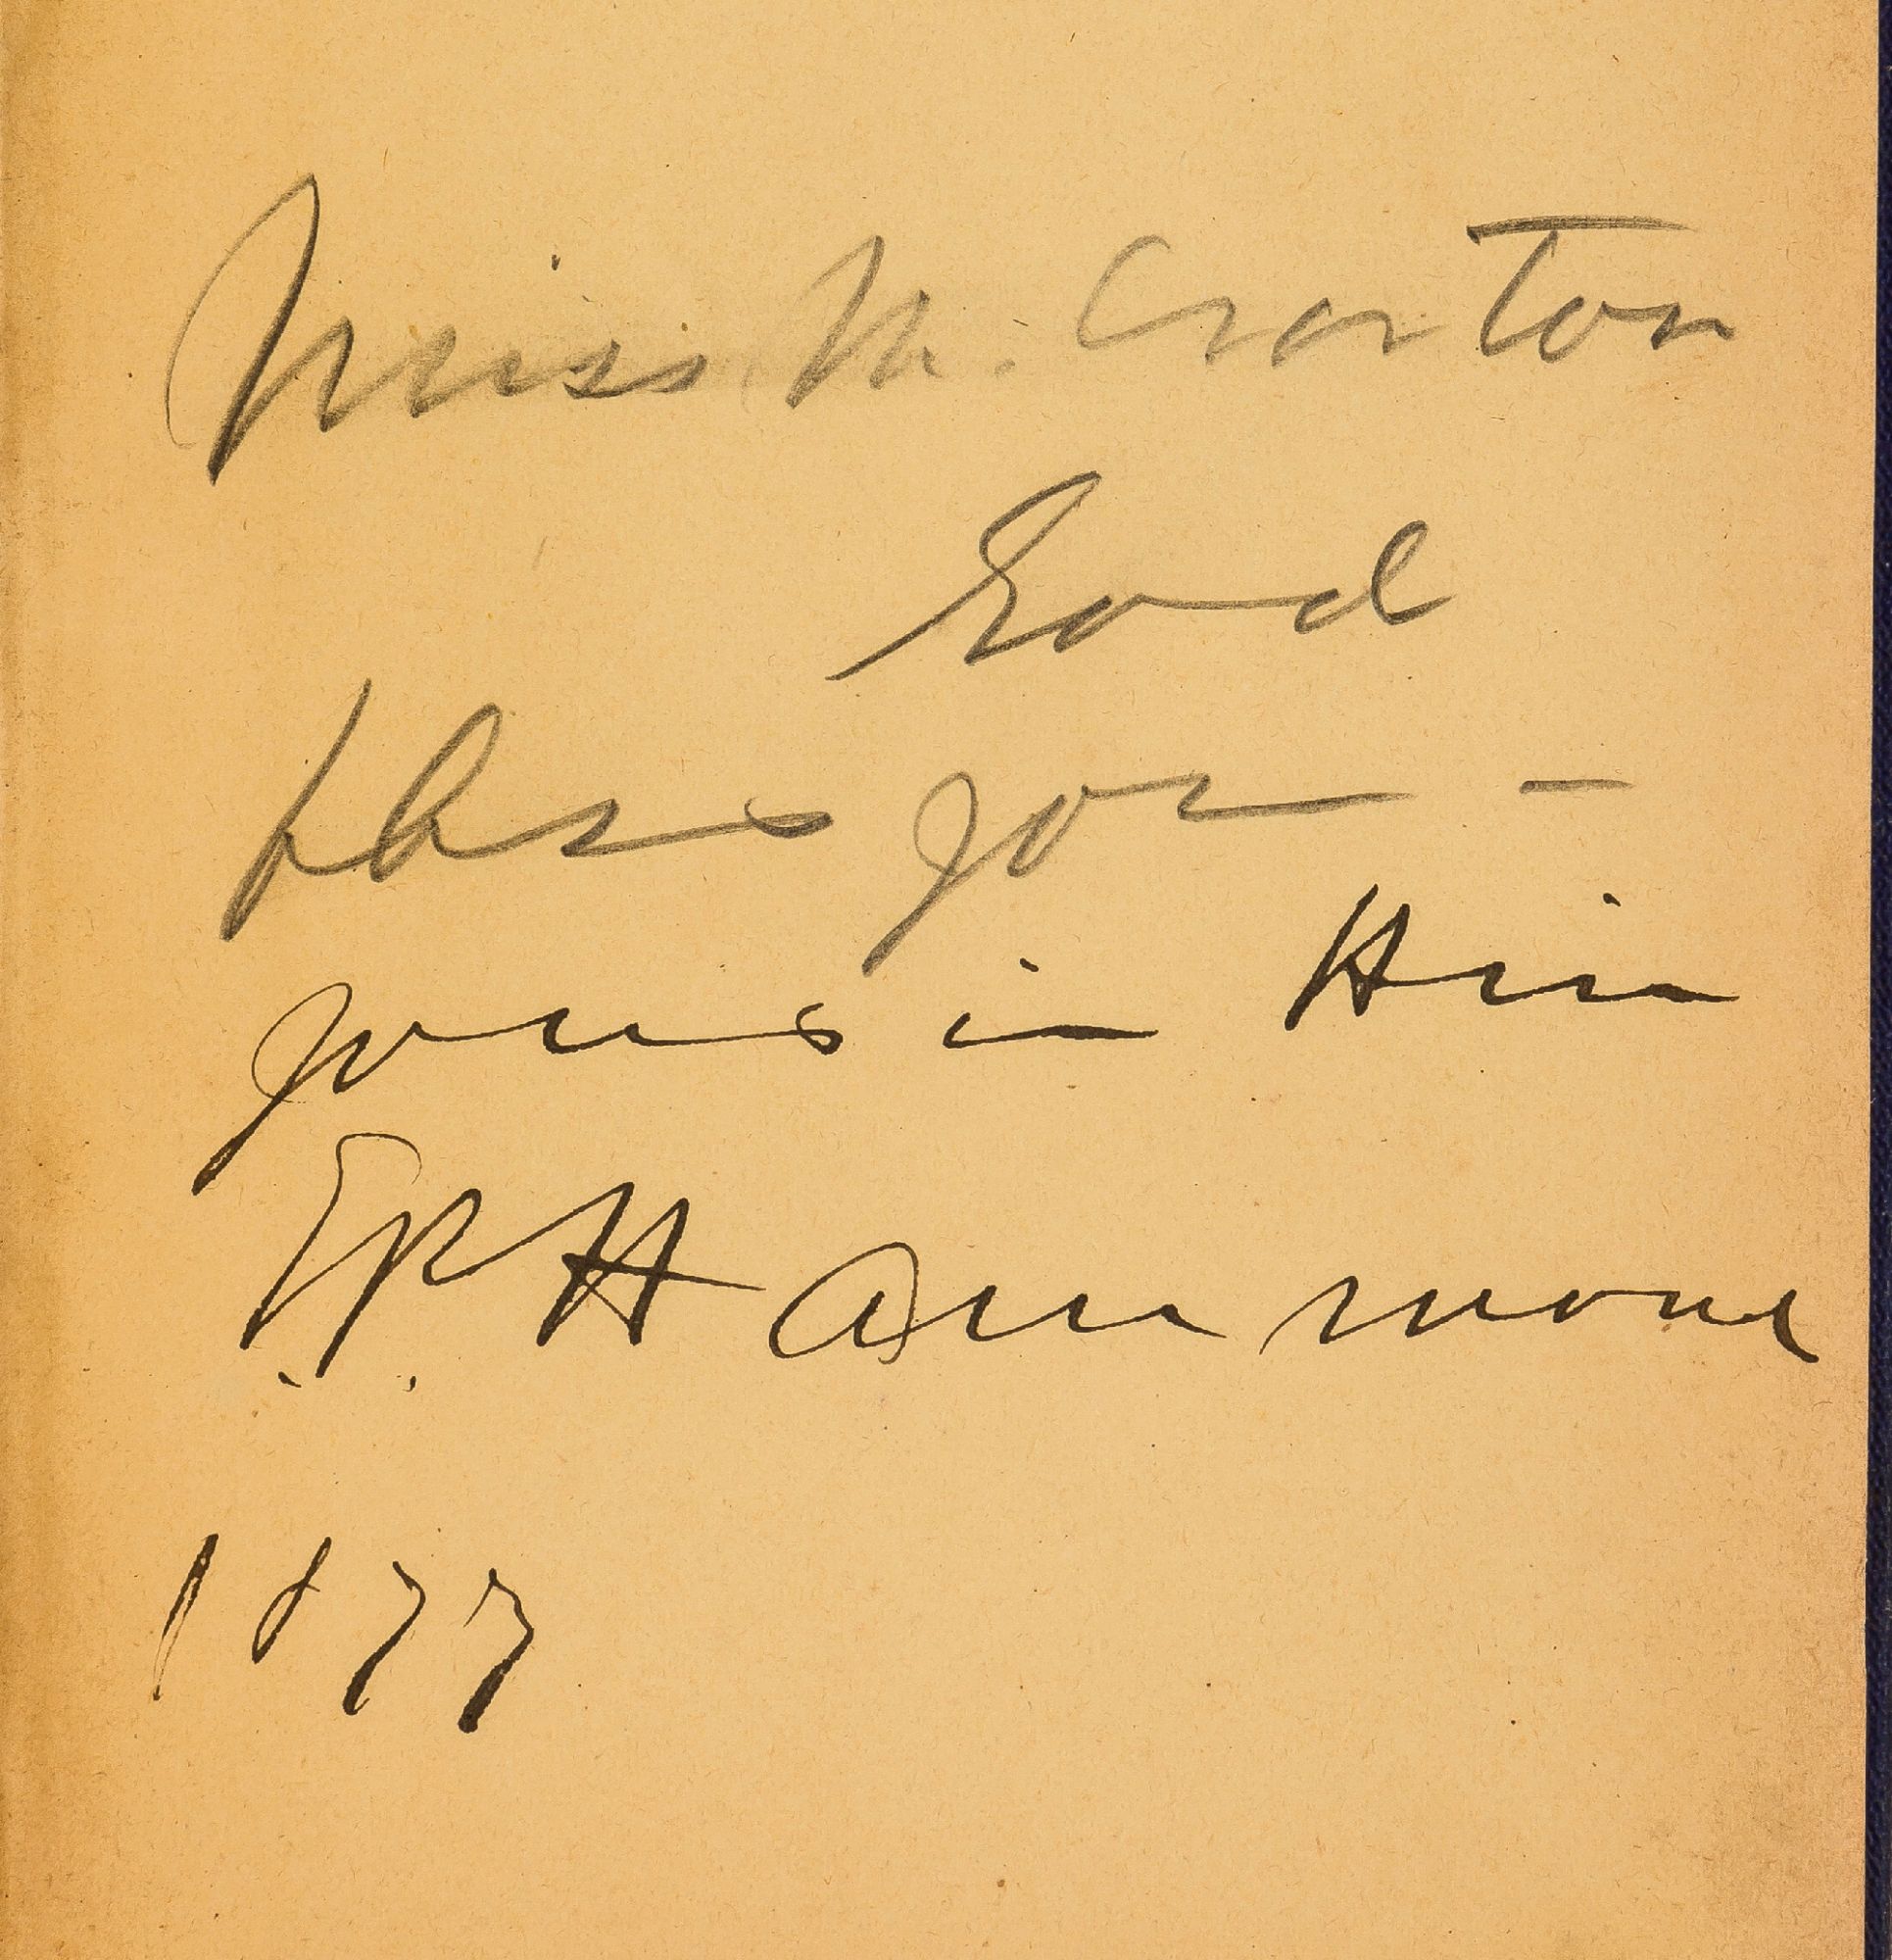 Miss M. Croxton
God
bless you —
yours in Him
E.P. Hammond
1877